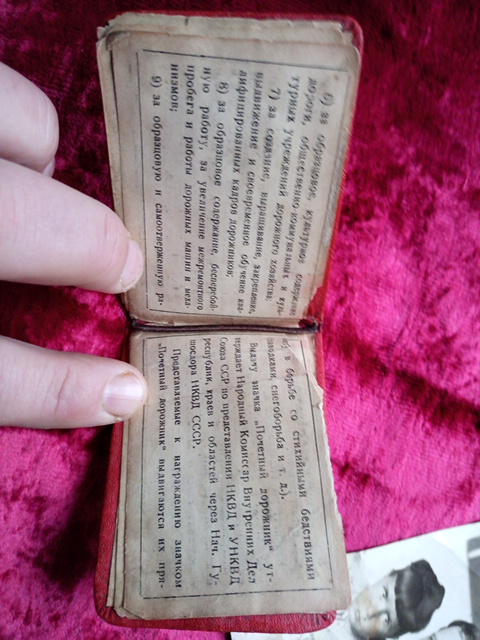 6) за образцовое, культурное содержание
дороги, общественно-коммунальных и куль-
турных учреждений дорожного хозяйства;
7) за создание, выращивание, закрепление,
выдвижение и своевременное обучение ква-
лифицированных кадров дорожников;
8) за образцовое содержание, бесперебой-
ную работу, за увеличение межремонтного
пробега и работы дорожных машин и меха-
низмов;
9) за образцовую и самоотверженную ра-
в борьбе со стихийными бедствиями
снегоборьба и т. д.).
Выдачу значка „Почетный дорожник“ ут-
верждает Народный Комиссар Внутренних Дел
Союза ССР по представлении НКВД и УНКВД
республик, краев и областей через Нач. Гу-
шосдора НКВД СССР.
Представляемые к награждению значком
„Почетный дорожник“ выдвигаются их пря-